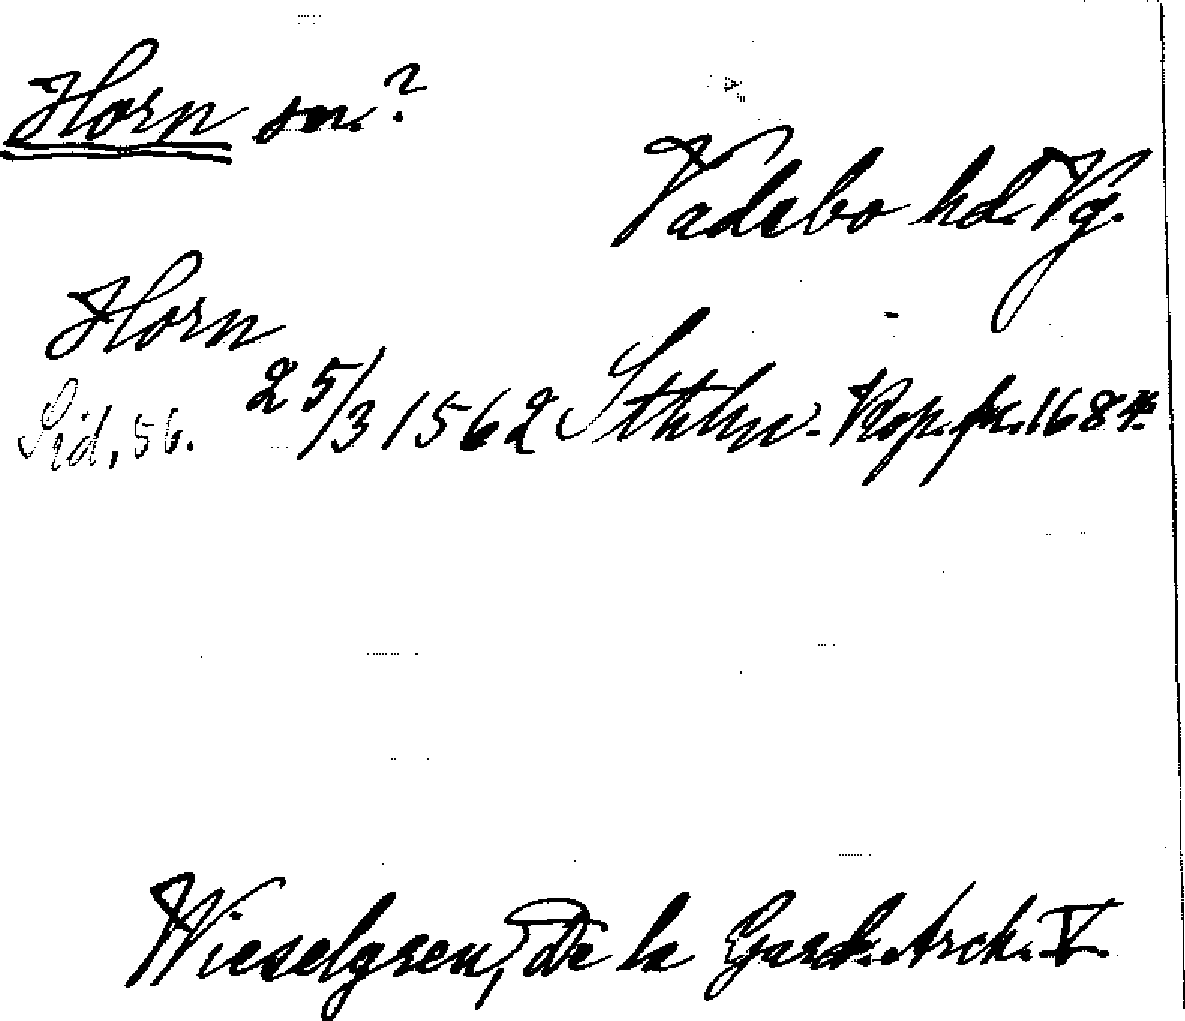 Horn sn.?
Vadsbo hd. Vg.
Horn
Sid. 56. 25/3 1562 Sthlm. Kop. fr. 1684.
Wieselgren, De la Gard. Arch. V.